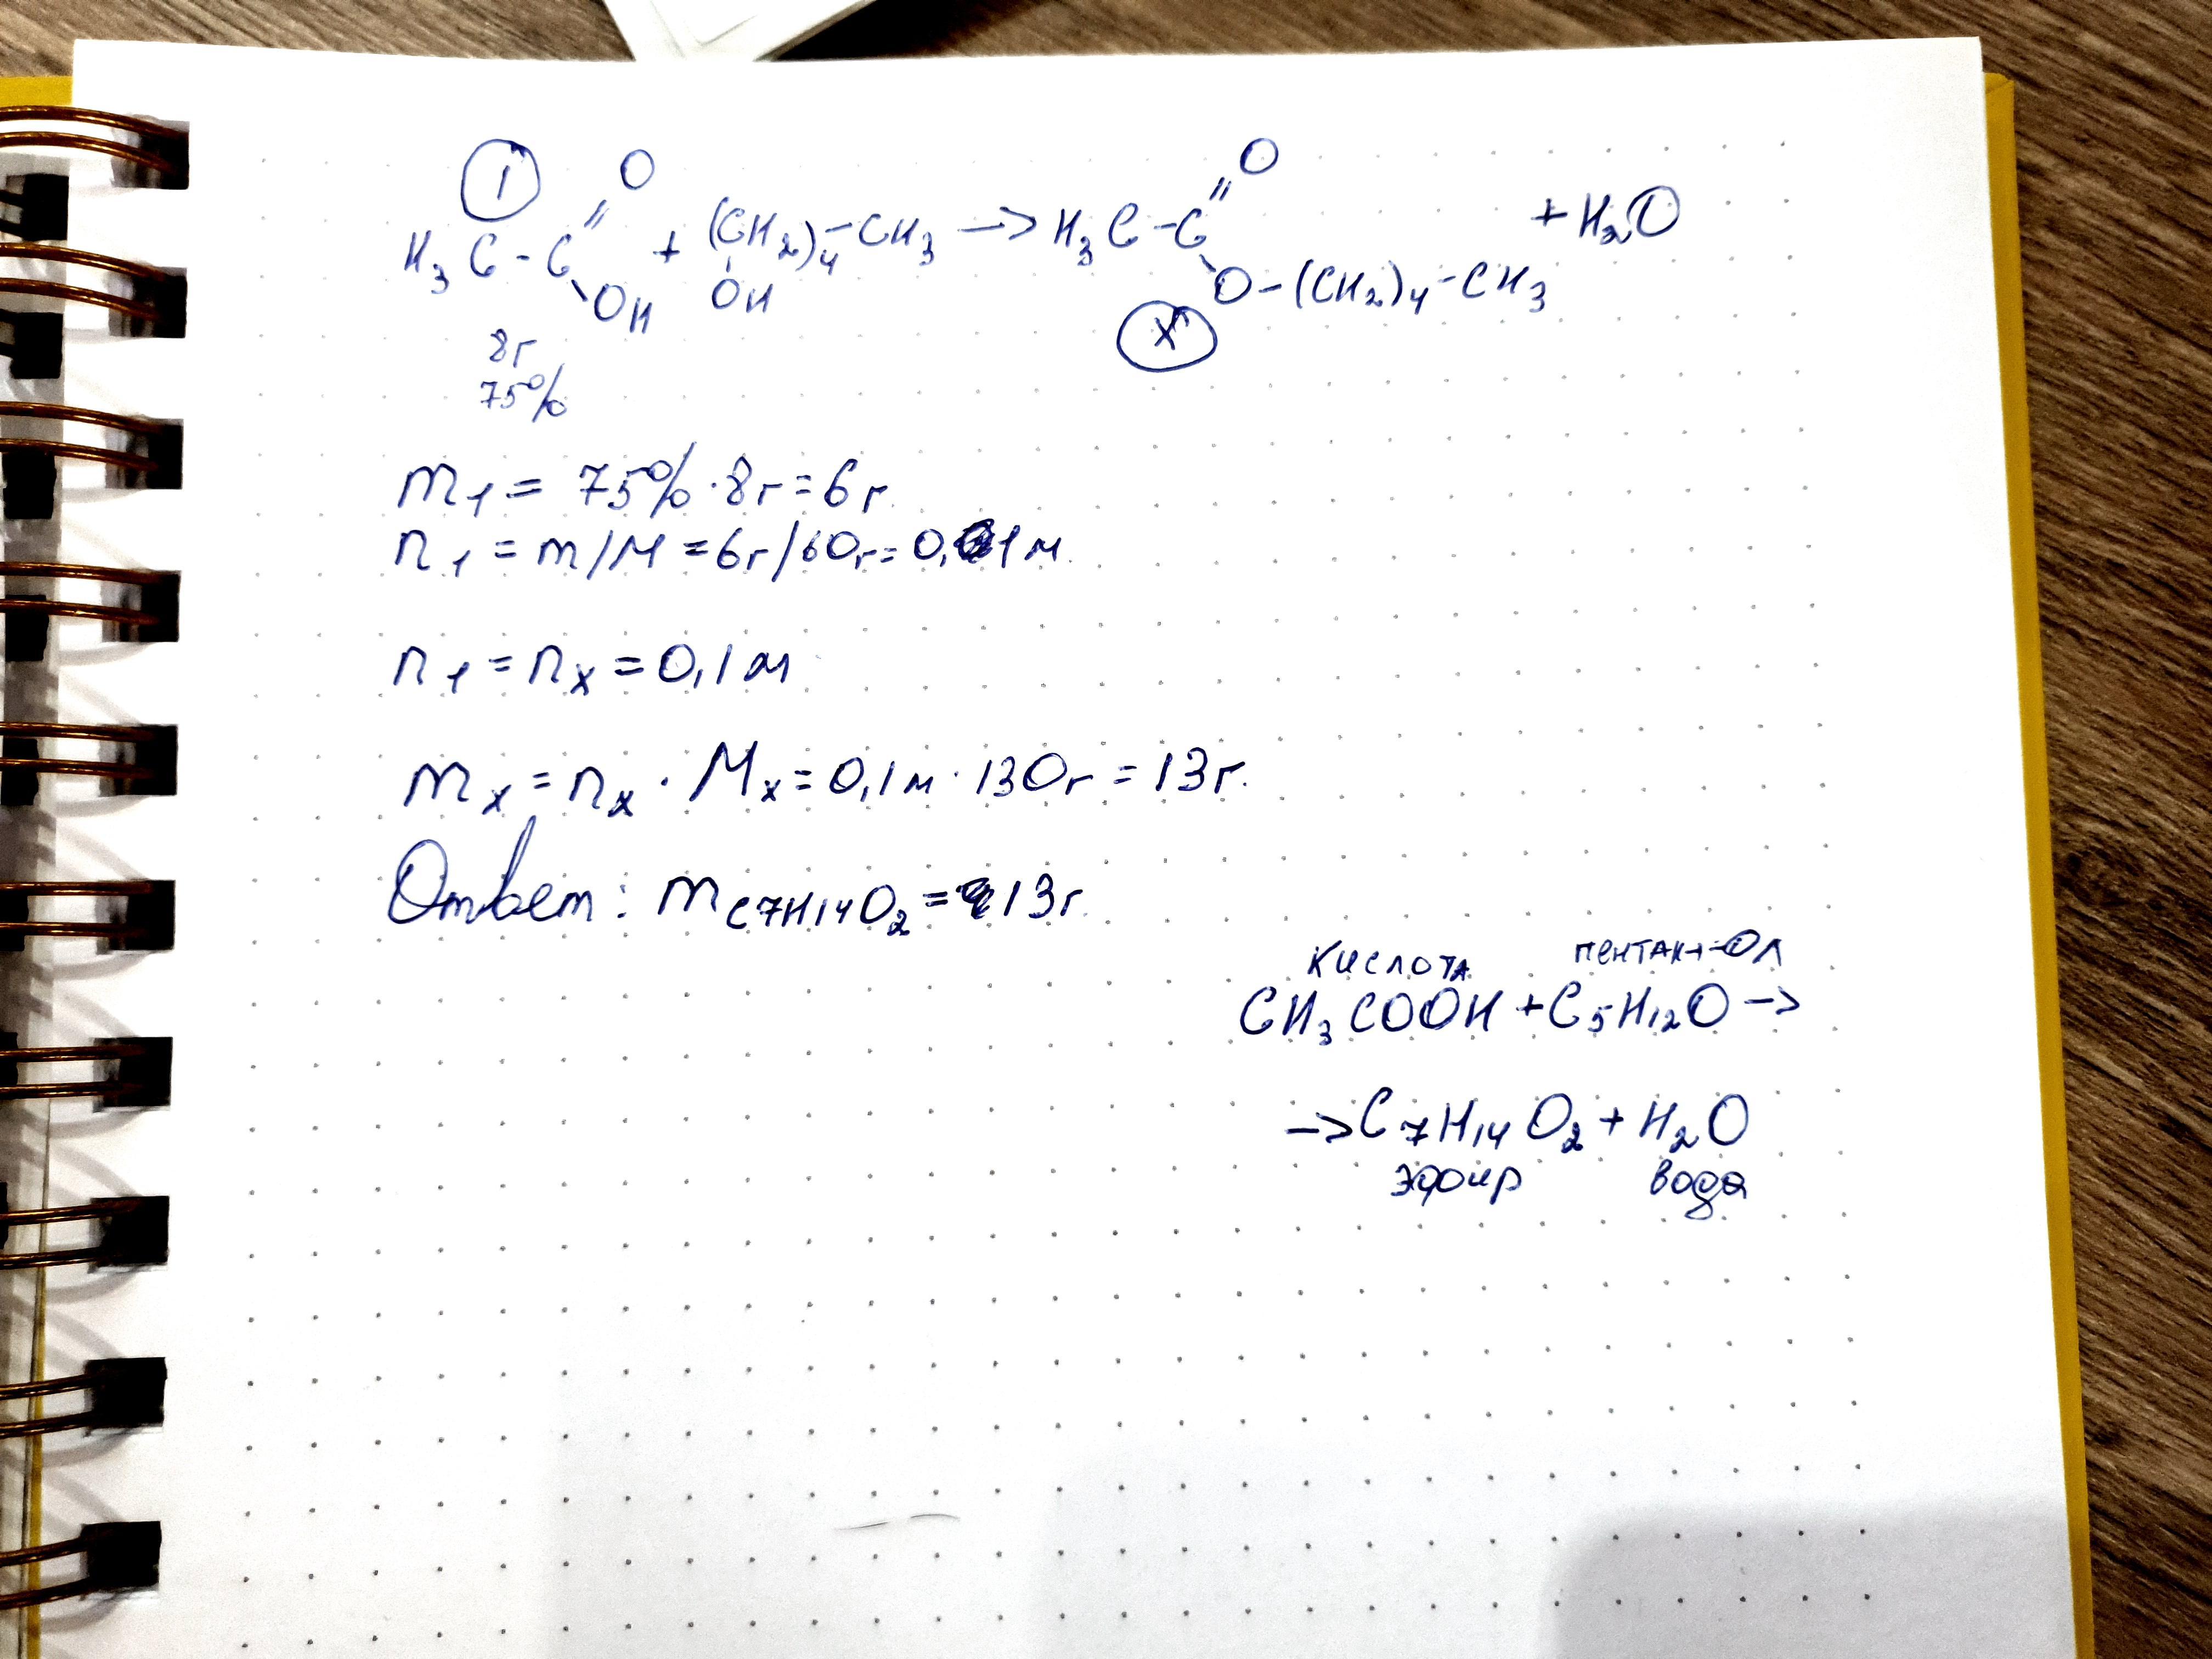 1
H₃C-C(=O)-OH + (CH₂)₄-CH₃ -> H₃C-C(=O)-O-(CH₂)₄-CH₃ + H₂O
OH
X
8г
75%
m₁ = 75% · 8г = 6г
n₁ = m/M = 6г/60г = 0,1м
n₁ = nₓ = 0,1м
mₓ = nₓ · Mₓ = 0,1м · 130г = 13г.
Ответ: m C₇H₁₄O₂ = 13г
кислота пентан-1-ол
CH₃COOH + C₅H₁₂O ->
-> C₇H₁₄O₂ + H₂O
эфир вода